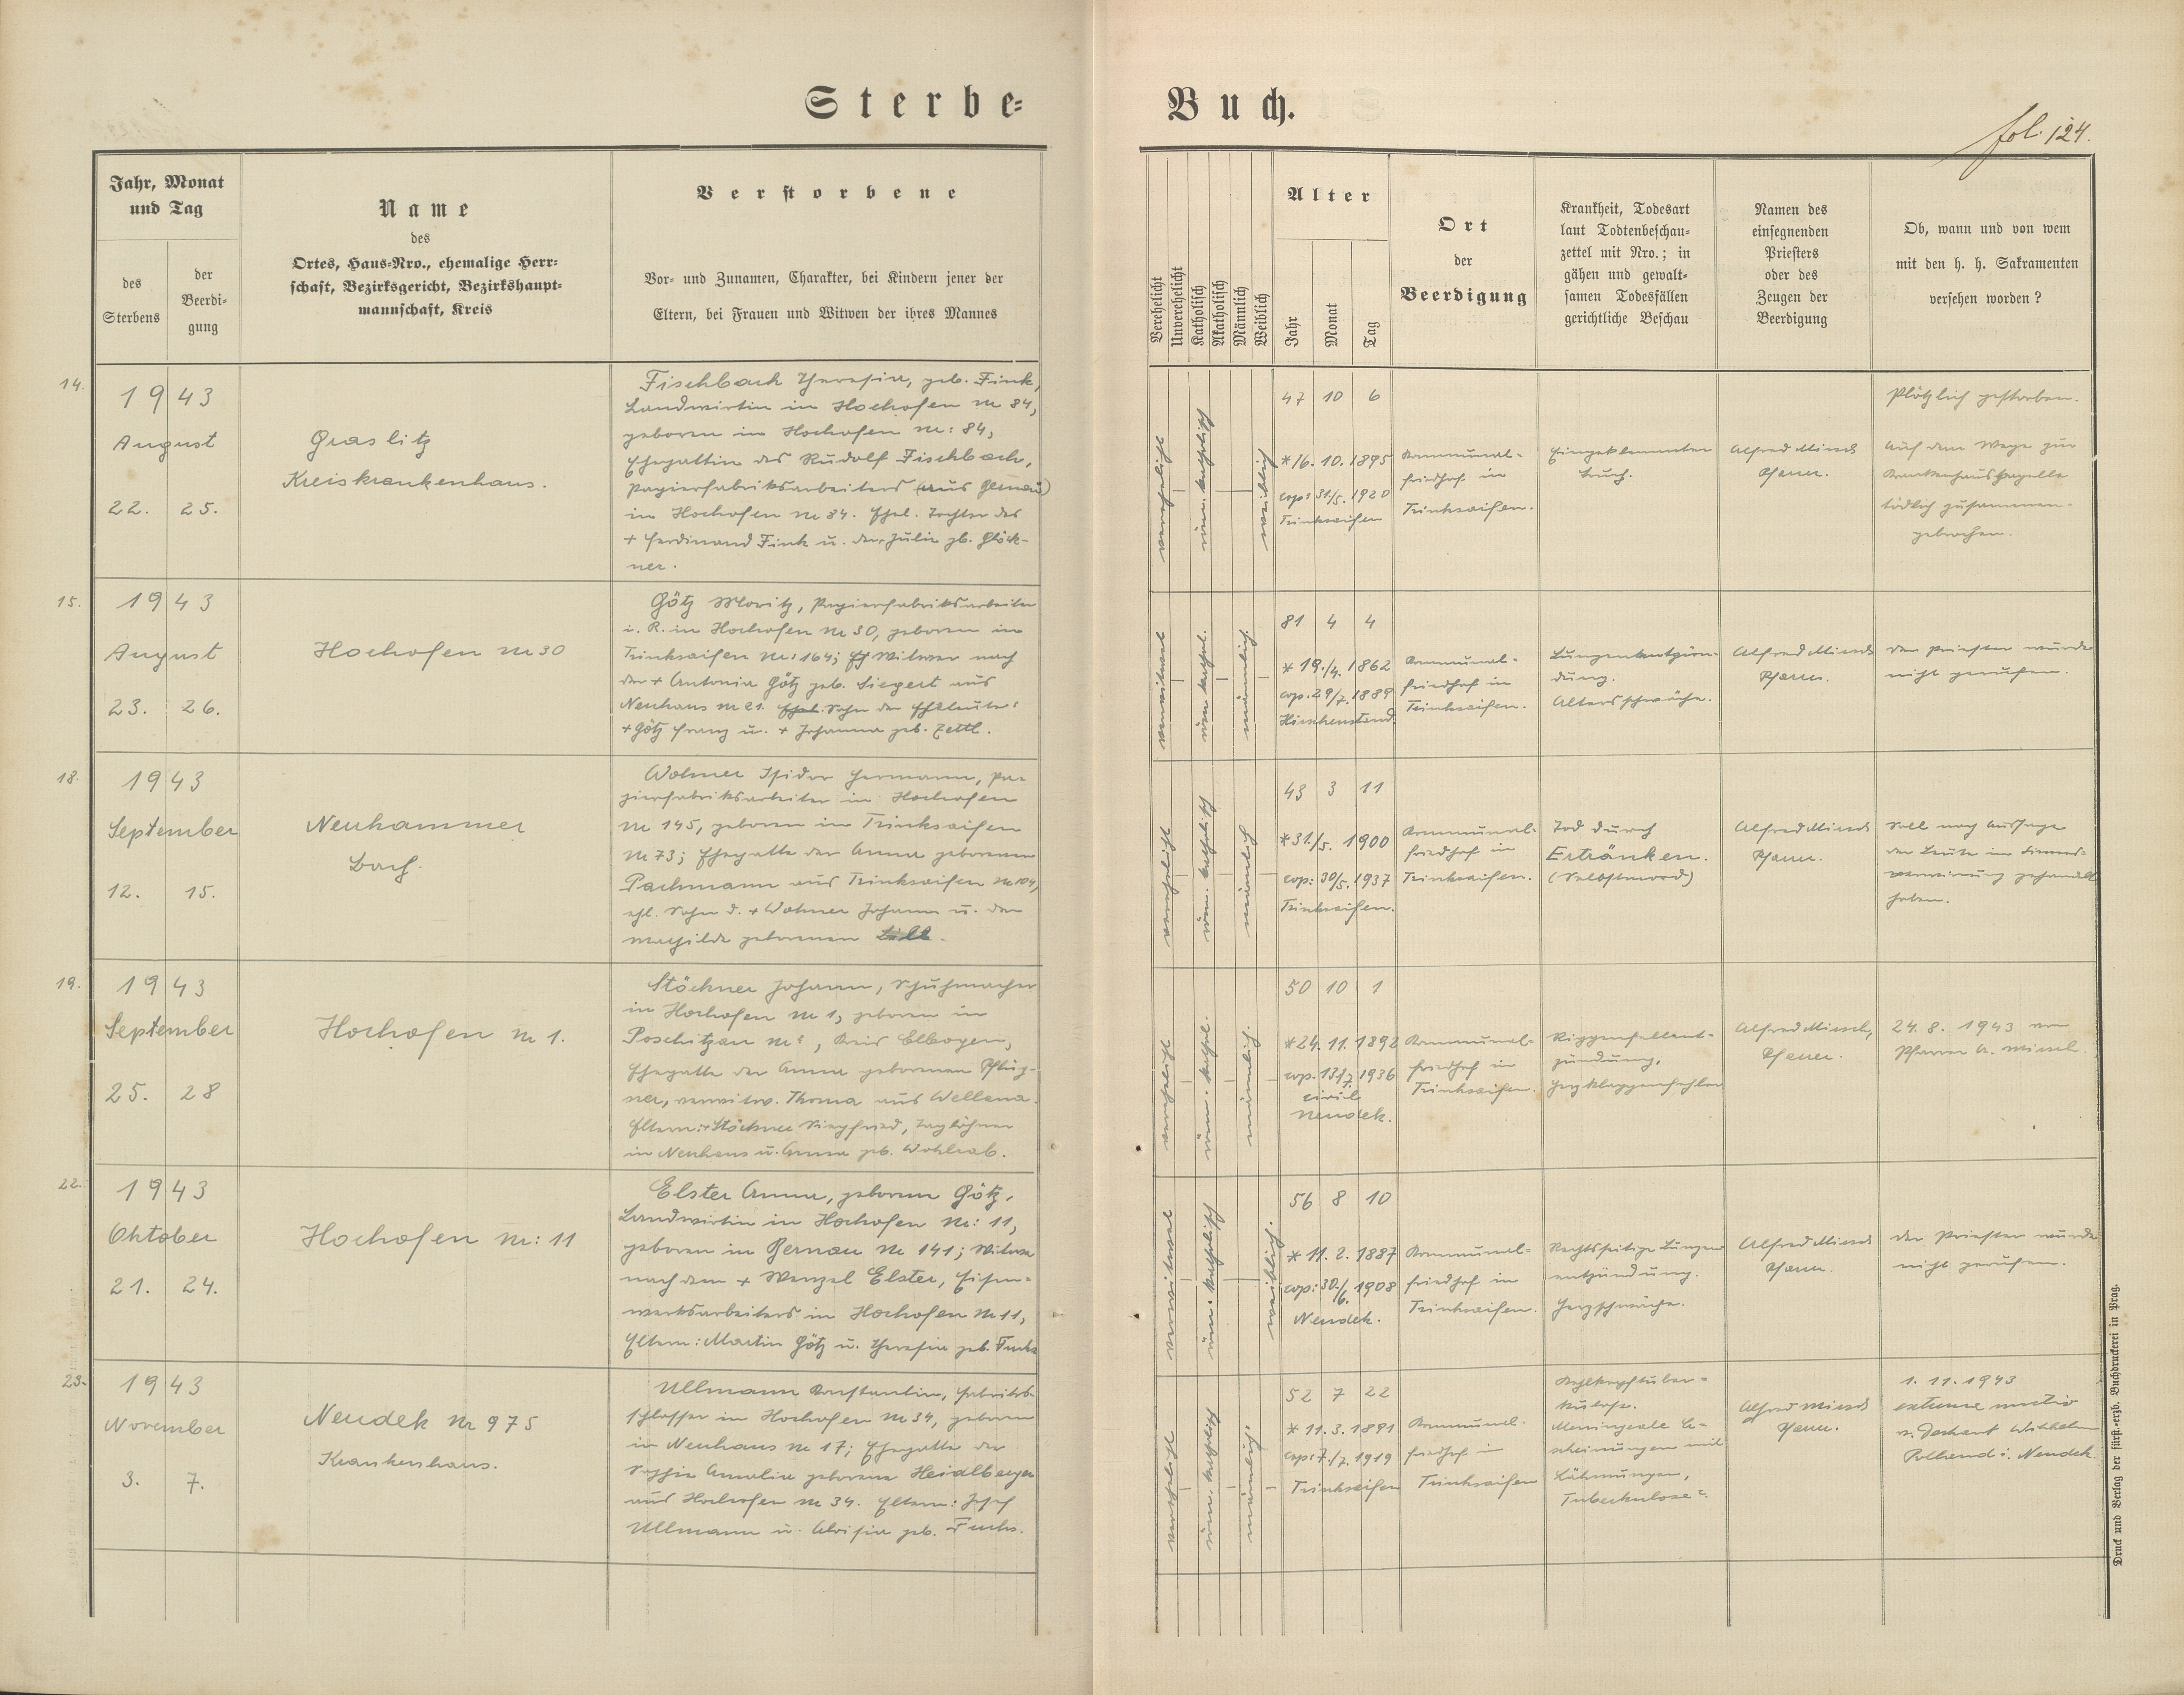 Sterbe-
Buch.
fol. 124.
Jahr, Monat
und Tag
des
Sterbens
der
Beerdi-
gung
Name
des
Ortes, Haus-Nro., ehemalige Herr-
schaft, Bezirksgericht, Bezirkshaupt-
mannschaft, Kreis
Verstorbene
Vor- und Zunamen, Charakter, bei Kindern jener der
Eltern, bei Frauen und Witwen der ihres Mannes
Verehelicht
Unverehelicht
Katholisch
Akatholisch
Männlich
Weiblich
Alter
Jahr
Monat
Tag
Ort
der
Beerdigung
Krankheit, Todesart
laut Todtenbeschau-
zettel mit Nro.; in
gähen und gewalt-
samen Todesfällen
gerichtliche Beschau
Namen des
einsegnenden
Priesters
oder des
Zeugen der
Beerdigung
Ob, wann und von wem
mit den h. h. Sakramenten
versehen worden?
14.
1943
August
22. 25.
Graslitz
Kreiskrankenhaus.
Fischbach Theresia, geb. Fink,
Landwirtin in Hochofen Nr 84,
geboren in Hochofen Nr: 84,
Ehegattin des Rudolf Fischbach,
Papierfabriksarbeiters (aus Gernau)
in Hochofen Nr 84. Ehel. Tochter des
+ Ferdinand Fink u. der Julie gb. Glöck-
ner.
verehelicht
röm. katholisch
weiblich
47 10 6
*16. 10. 1895
cop: 31/5. 1920
Trinksaifen
Kommunal-
friedhof in
Trinksaifen.
Eingeklemmter
bruch.
Alfred Miesch
Pfarrer.
Plötzlich gestorben.
Auf dem Wege zur
Krankenhauskapelle
tödlich zusammen-
gebrochen.
15.
1943
August
23. 26.
Hochofen Nr 30
Götz Moritz, Papierfabriksarbeiter
i. R. in Hochofen Nr 30, geboren in
Trinksaifen Nr: 164; Witwer nach
der + Antonia Götz geb. Siegert aus
Neuhaus Nr 21. Ehel. Sohn der Eheleute:
+ Götz Franz u. + Johanna geb. Zettl.
verwitwet
röm. kathol.
männlich.
81 4 4
* 19./4. 1862
cop. 29/7. 1889
Hirschenstand.
Kommunal-
friedhof in
Trinksaifen.
Lungenentzün-
dung.
Altersschwäche.
Alfred Miesch
Pfarrer.
Der Priester wurde
nicht gerufen.
18.
1943
September
12. 15.
Neuhammer
Bach.
Wohner Isidor Hermann, Pa-
pierfabriksarbeiter in Hochofen
Nr 145, geboren in Trinksaifen
Nr 73; Ehegatte der Anna geborenen
Pachmann aus Trinksaifen Nr 104,
ehl. Sohn d. + Wohner Johann u. der
Mathilde geborenen Lill.
verehelicht
röm. katholisch
männlich
43 3 11
*31./5. 1900
cop: 30/5. 1937
Trinksaifen.
Kommunal-
friedhof in
Trinksaifen.
Tod durch
Ertränken.
(Selbstmord)
Alfred Miesch
Pfarrer.
Soll nach Aussage
der Leute in Sinnes-
verwirrung gehandelt
haben.
19.
1943
September
25. 28
Hochofen Nr 1.
Stöckner Johann, Schuhmacher
in Hochofen Nr 1, geboren in
Poschitzau Nr: , Kreis Elbogen,
Ehegatte der Anna geborenen
ner, verwitw. Thoma aus
Eltern: + Stöckner Siegfried, Taglöhner
in Neuhaus u. Anna geb. Wohlrab.
verehelicht
röm. kathol.
männlich.
50 10 1
*24. 11. 1892
cop. 13/7. 1936
civil
Neudek.
Kommunal-
friedhof in
Trinksaifen.
Rippenfellent-
zündung,
Herzklappenfehler
Alfred Miesch,
Pfarrer.
24. 8. 1943 von
Pfarrer A. Miesch.
22.
1943
Oktober
21. 24.
Hochofen Nr: 11
Elster Anna, geborene Götz,
Landwirtin in Hochofen Nr: 11,
geboren in Bernau Nr 141; Witwe
nach dem + Wenzel Elster, Eisen-
werksarbeiters in Hochofen Nr 11,
Eltern: Martin Götz u. Theresia geb. Fuchs
verwitwet
röm. katholisch
weiblich.
56 8 10
* 11. 2. 1887
cop: 30/6. 1908
Neudek.
Kommunal-
friedhof in
Trinksaifen.
Rechtsseitige Lungen
entzündung.
Herzschwäche.
Alfred Miesch
Pfarrer.
Der Priester wurde
nicht gerufen.
23.
1943
November
3. 7.
Neudek Nr 975
Krankenhaus.
Ullmann Konstantin, Fabriks-
schlosser in Hochofen Nr 34, geboren
in Neuhaus Nr 17; Ehegatte der
Sophie Amalia geborene Heidlberger
aus Hochofen Nr 34. Eltern: Josef
Ullmann u. Aloisia geb. Fuchs.
verehelicht
röm. katholisch
männlich.
52 7 22
* 11. 3. 1891
cop: 7./7. 1919
Trinksaifen
Kommunal-
friedhof in
Trinksaifen
Kehlkopftuber-
kulose.
Meningeale Er-
scheinungen mit
Lähmungen,
Tuberkulose?.
Alfred Miesch
Pfarrer.
1. 11. 1943
extreme unctio
v. Dechant Wilhelm
i. Neudek.
Druck und Verlag der fürst.-erzb. Buchdruckerei in Prag.